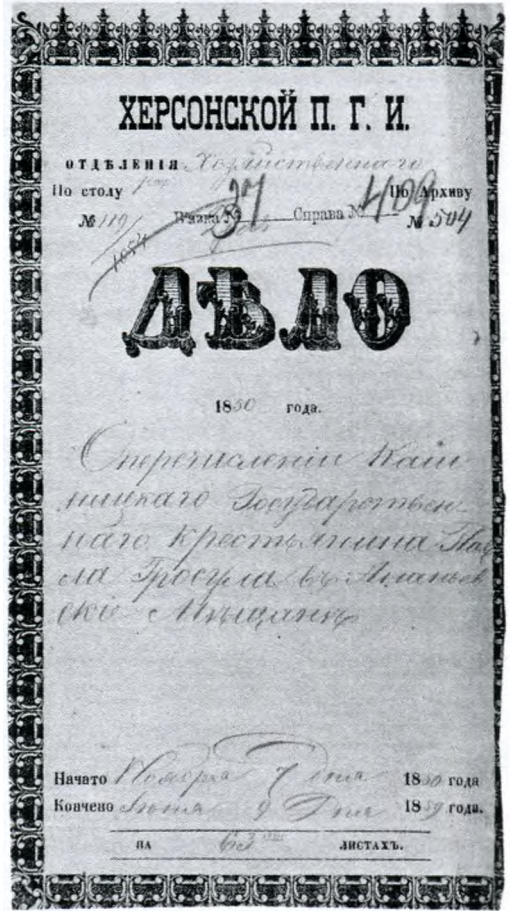 ХЕРСОНСКОЙ П. Г. И.
ОТДѢЛЕНІЯ Хозяйственнаго
По столу По Архиву
№ 119 Вязка № 37 Справа № 409 № 504
1054
ДѢЛО
1850 года.
О перечисленіи
ницкаго Государствен
наго крестьянина Пав
ла Гросула въ Ананьев
скіе Мѣщане
Начато Ноября 7 дня 1850 года
Кончено 9 Дня 1859 года.
НА ЛИСТАХЪ.